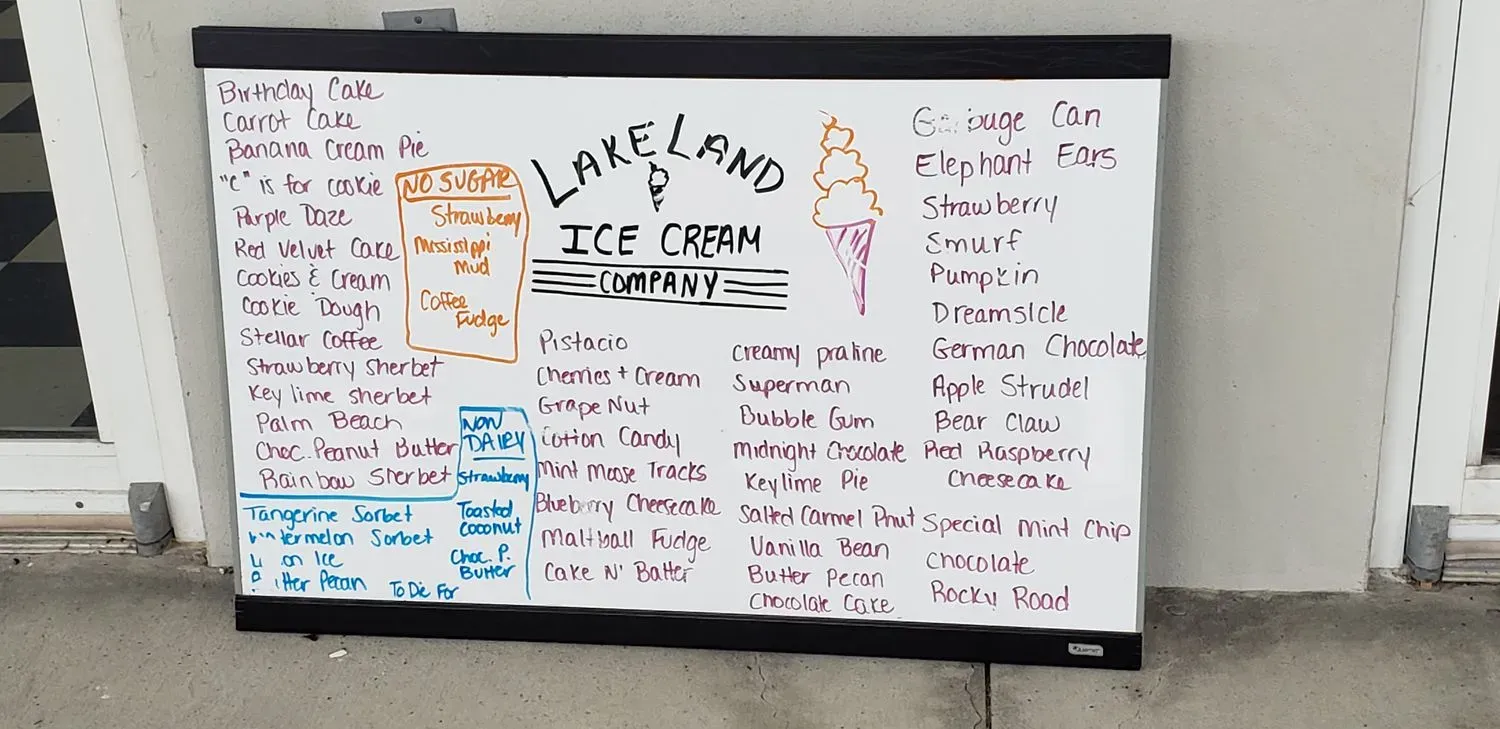 Birthday Cake
Carrot Cake
Banana Cream Pie
"C" is for cookie
Purple Daze
Red Velvet Cake
Cookies & Cream
Cookie Dough
Stellar Coffee
Strawberry Sherbet
Key lime sherbet
Palm Beach
Choc. Peanut Butter
Rainbow Sherbet
NO SUGAR
Strawberry
Mississippi
Mud
Coffee
Fudge
NON
DAIRY
Strawberry
Toasted
Coconut
Choc. P.
Butter
Tangerine Sorbet
Sorbet
Ice
Pecan
To Die For
LAKELAND
ICE CREAM
COMPANY
Pistacio
Cherries + Cream
Grape Nut
Cotton Candy
Mint Moose Tracks
Blueberry Cheesecake
Maltball Fudge
Cake N' Batter
Creamy praline
Superman
Bubble Gum
Midnight Chocolate
Keylime Pie
Salted Carmel Pnut
Vanilla Bean
Butter Pecan
Chocolate Cake
Can
Elephant Ears
Strawberry
Smurf
Pumpkin
Dreamsicle
German Chocolate
Apple Strudel
Bear Claw
Red Raspberry
Cheesecake
Special Mint Chip
Chocolate
Rocky Road